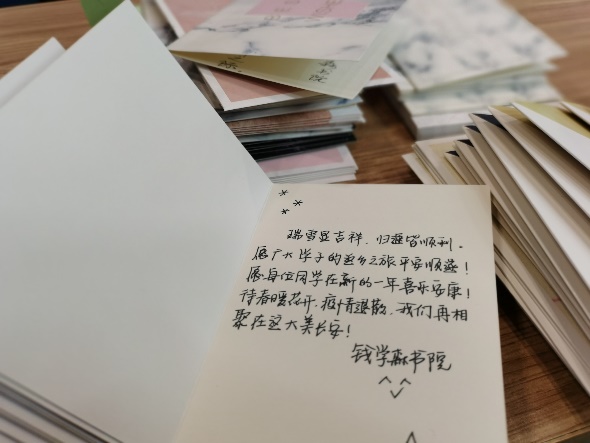 瑞雪显吉祥，归途皆顺利。
愿广大学子的返乡之旅平安顺遂！
愿每位同学在新的一年喜乐安康！
待春暖花开，疫情退散，我们再相
聚在这大美长安！
钱学森书院